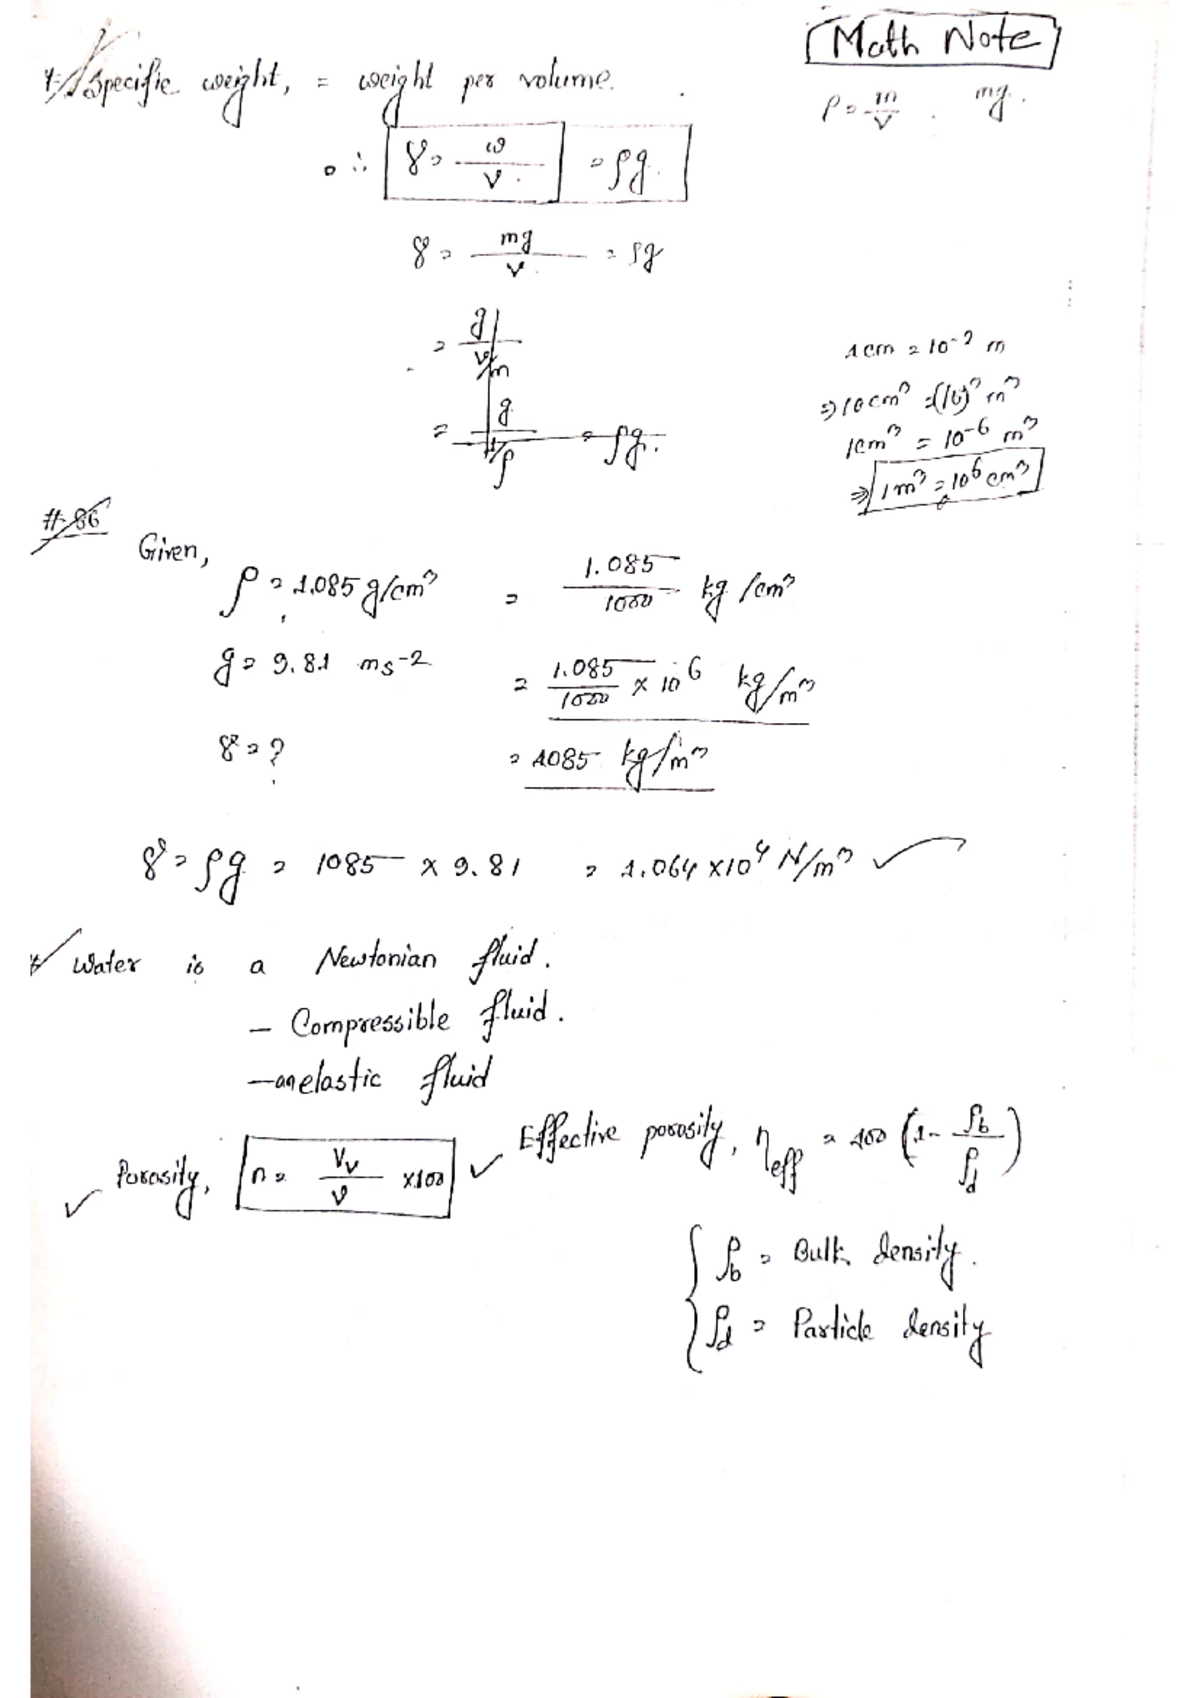 Math Note
* Specific weight, = weight per volume.
ρ = m/V . mg.
∴ γ = w/V = ρg.
γ = mg/V = ρg
= g/(V/m)
= g/(1/ρ) = ρg.
1 cm = 10^-2 m
1cm³ = 10^-6 m³
⇒ 1m³ = 10^6 cm³
# 86
Given,
ρ = 1.085 g/cm³ = 1.085/1000 kg/cm³
g = 9.81 ms^-2 = 1.085/1000 × 10^6 kg/m³
γ = ? = 1085 kg/m³
γ = ρg = 1085 × 9.81 = 1.064 × 10^4 N/m³ ✓
* Water is a Newtonian fluid.
– Compressible fluid.
– an elastic fluid
✓ Porosity, n = Vv/V × 100
✓ Effective porosity, ηeff = 100 (1 - ρb/ρd)
ρb = Bulk density.
ρd = Particle density